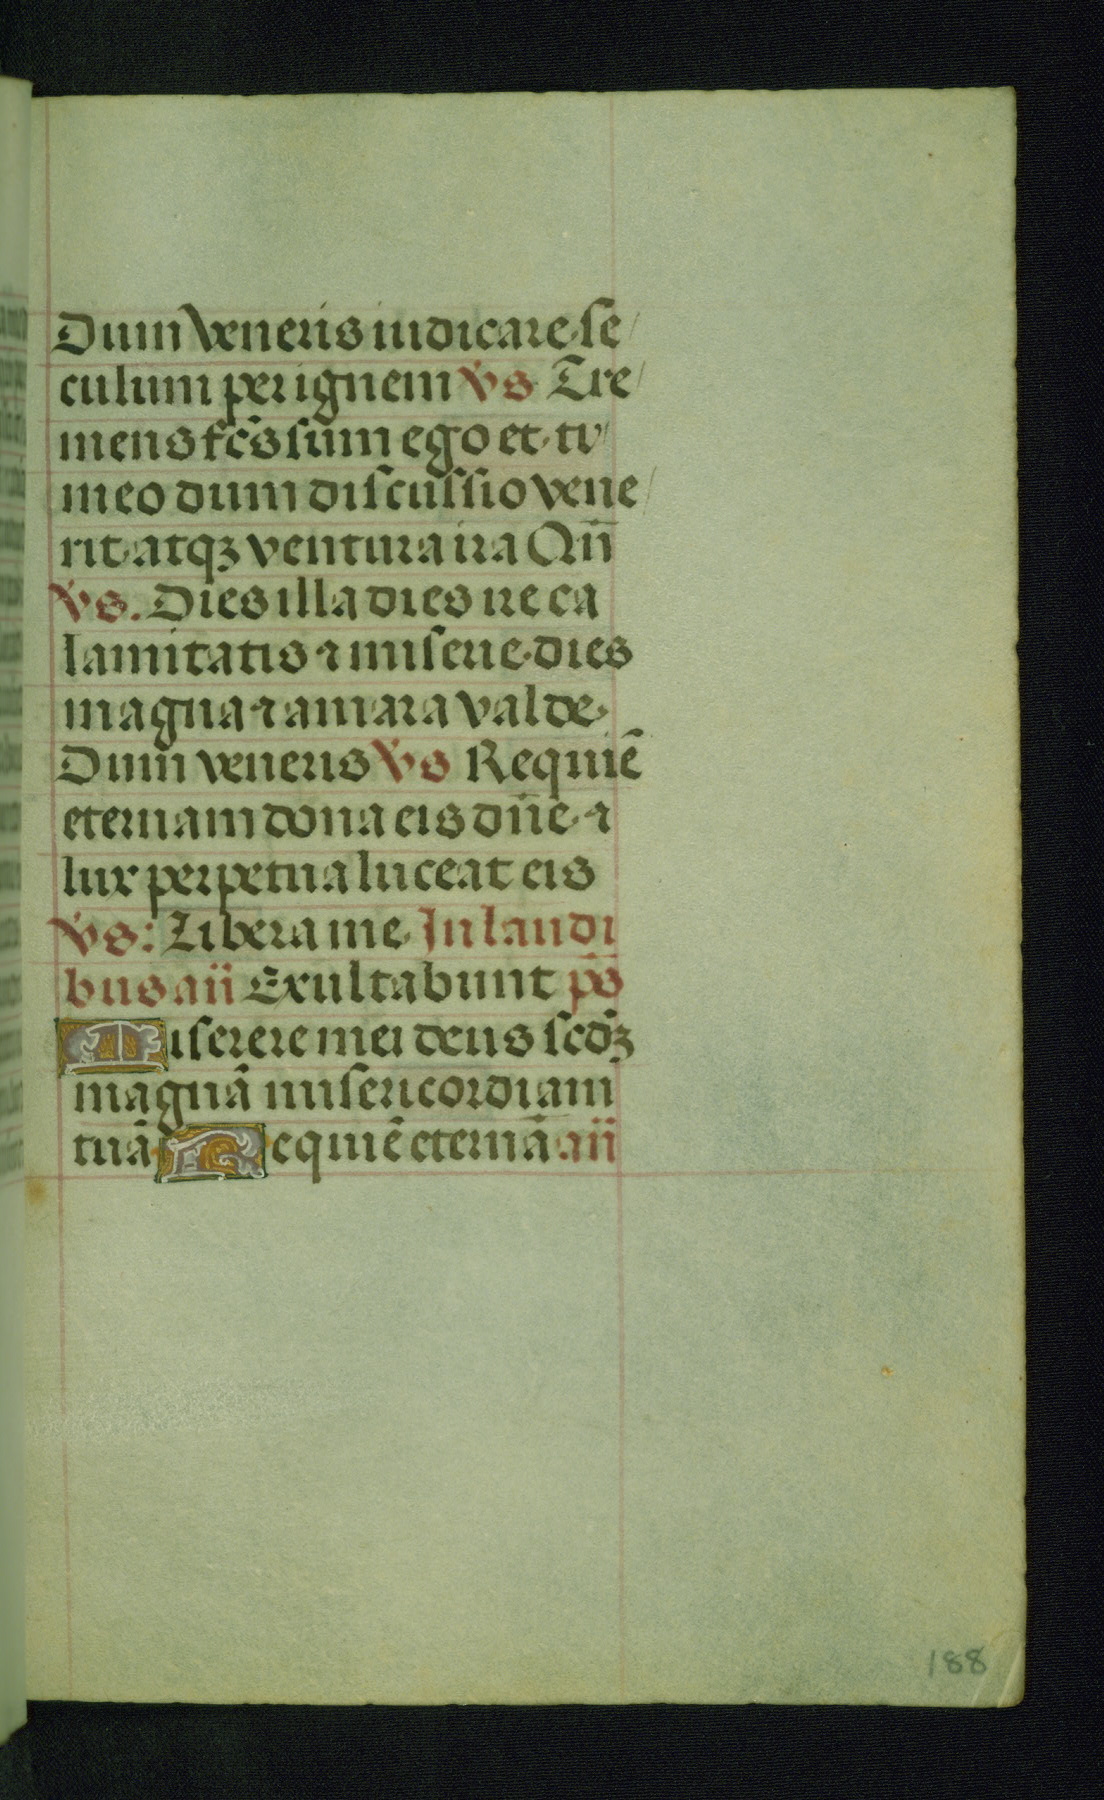 Dum veneris iudicare se/
culum per ignem v̾s Tre/
mens fc̄s sum ego et ti/
meo dum discussio vene/
rit atqꝫ ventura ira Qn̄
v̾s. Dies illa dies ire ca
lamitatis ⁊ miserie dies
magna ⁊ amara valde
Dum veneris v̾s Requiē
eternam dona eis dn̄e ⁊
lux perpetua luceat eis
v̾s: Libera me In laudi
bus an̄ Exultabunt ps̄
Miserere mei deus scd̄ꝫ
magnā misericordiam
tuā Requiē eternā an̄
188